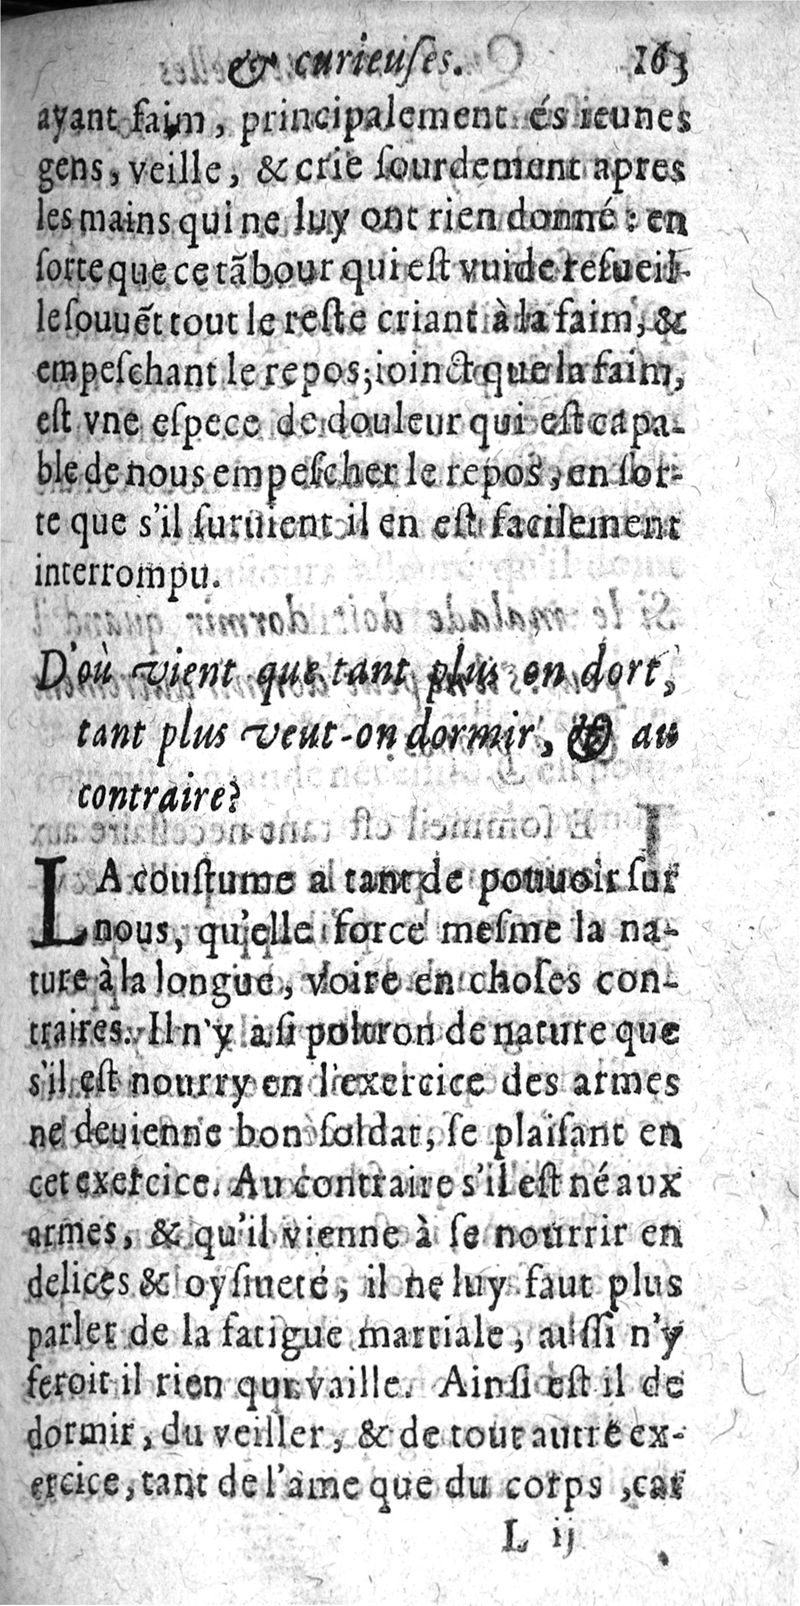 & curieuſes. 163
ayant faim, principalement és ieunes
gens, veille, & crie ſourdement apres
les mains qui ne luy ont rien donné : en
ſorte que ce tãbour qui eſt vuide reſueil-
le ſouuẽt tout le reſte criant à la faim, &
empeſchant le repos; ioinct que la faim,
eſt vne eſpece de douleur qui eſt capa-
ble de nous empeſcher le repos, en ſor-
te que s'il ſuruient il en eſt facilement
interrompu.
D'où vient que tant plus on dort,
tant plus veut-on dormir, & au
contraire?
LA couſtume a tant de pouuoir ſur
nous, qu'elle force meſme la na-
ture à la longue, voire en choſes con-
traires. Il n'y a ſi poltron de nature que
s'il eſt nourry en l'exercice des armes
ne deuienne bon ſoldat, ſe plaiſant en
cet exercice. Au contraire s'il eſt né aux
armes, & qu'il vienne à ſe nourrir en
delices & oyſiueté, il ne luy faut plus
parler de la fatigue martiale, auſſi n'y
feroit il rien qui vaille. Ainſi eſt il de
dormir, du veiller, & de tout autre ex-
ercice, tant de l'ame que du corps, car
L ij